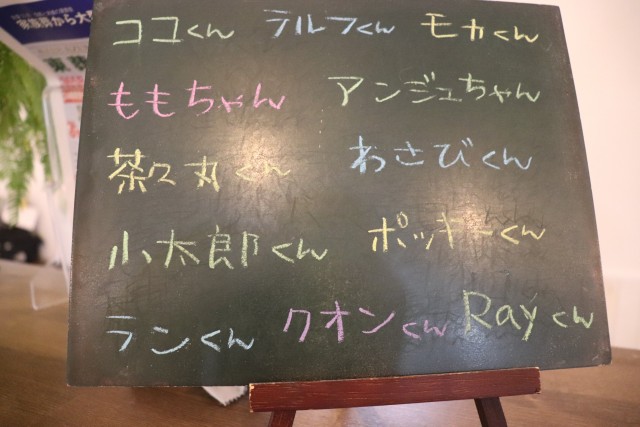 ココくん テルフくん モカくん
ももちゃん アンジュちゃん
茶々丸くん わさびくん
小太郎くん ポッキーくん
ランくん クオンくん Rayくん